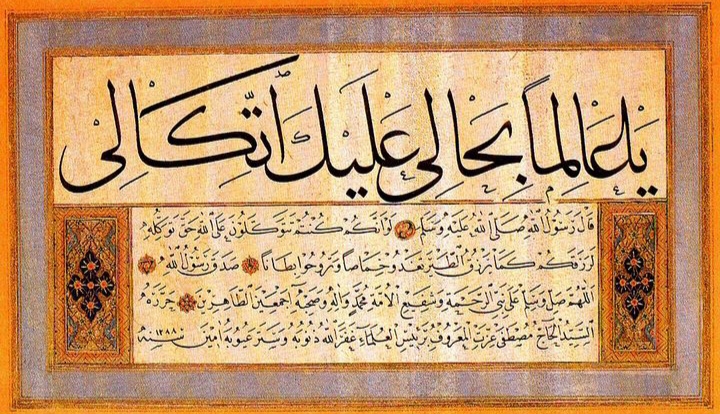 يَا عَالِمًا بِحَالِي عَلَيْكَ اتِّكَالِي
قال رسول الله صلى الله عليه وسلم لو أنكم كنتم توكلون على الله حق توكله
لرزقكم كما يرزق الطير تغدو خماصا وتروح بطانا صدق رسول الله
اللهم صل وسلم على نبي الرحمة وشفيع الأمة محمد وآله وصحبه أجمعين الطاهرين حرره
السيد الحاج مصطفى عزت المعروف برئيس العلماء غفر الله ذنوبه وستر عيوبه آمين سنه